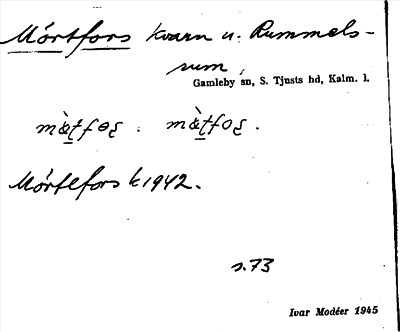 Mörtfors kvarn u. Rummels-
rum
Gamleby sn, S. Tjusts hd, Kalm. l.
Mörtefors k 1942.
s. 73
Ivar Modéer 1945